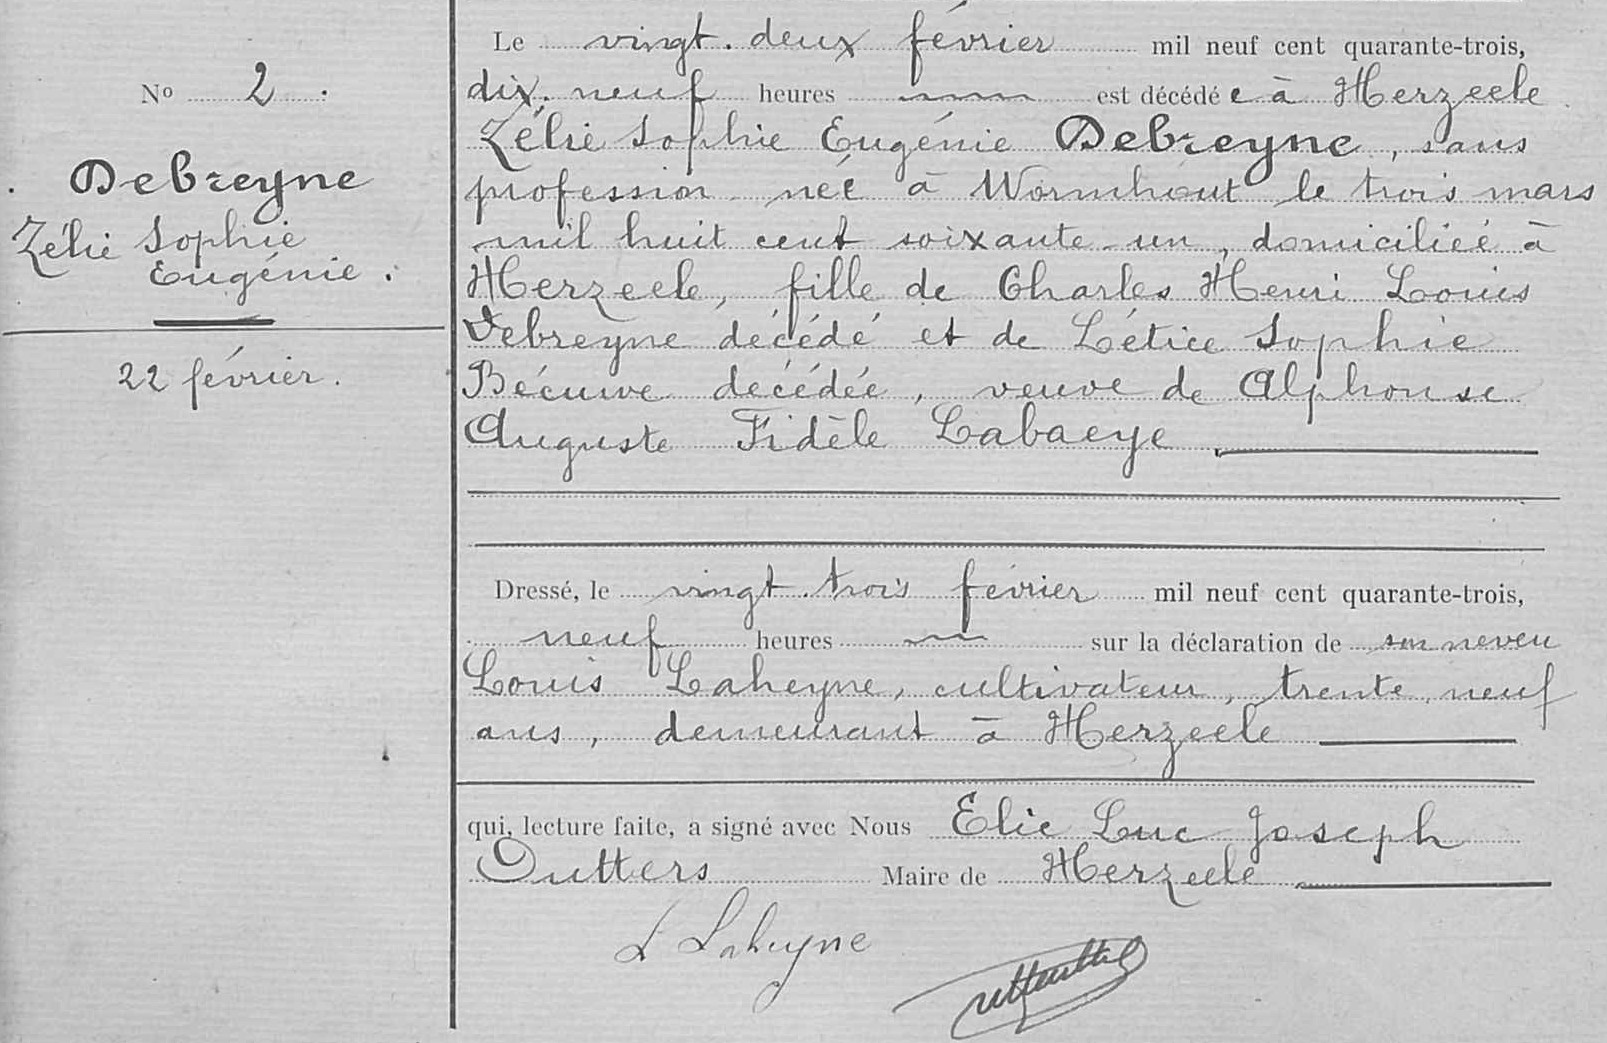 Nº 2.
Debreyne
Zélie Sophie
Eugénie.
22 février.
Le vingt-deux février mil neuf cent quarante-trois,
dix-neuf heures est décédée à Herzeele
Zélie Sophie Eugénie Debreyne, sans
profession née à Wormhout le trois mars
mil huit cent soixante-un, domiciliée à
Herzeele, fille de Charles Henri Louis
Debreyne décédé et de Létice Sophie
Bécuwe décédée, veuve de Alphonse
Auguste Fidèle Labaeye
Dressé, le vingt-trois février mil neuf cent quarante-trois,
neuf heures sur la déclaration de son neveu
Louis Laheyne, cultivateur, trente-neuf
ans, demeurant à Herzeele
qui, lecture faite, a signé avec Nous Elie Luc Joseph
Outters Maire de Herzeele
L Laheyne